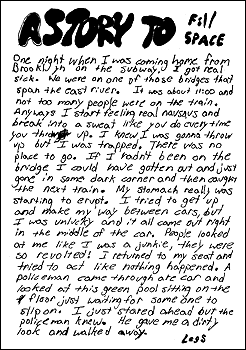 A STORY TO Fill
SPACE
One night when I was coming home from
Brooklyn on the subway, I got real
sick. We were on one of those bridges that
span the east river. It was about 11:00 and
not too many people were on the train.
Anyways I start feeling real nauseus and
break into a sweat like you do everytime
you throw up. I knew I was gonna throw
up but I was trapped. There was no
place to go. If I hadn't been on the
bridge I could have gotten out and just
gone in some dark corner and then caught
the next train. My stomach really was
starting to erupt. I tried to get up
and make my way between cars, but
I was unlucky and it all came out right
in the middle of the car. People looked
at me like I was a junkie, they were
so revolted! I returned to my seat and
tried to act like nothing happened. A
policeman came through the car and
looked at this green pool sitting on the
floor just waiting for someone to
slip on. I just stared ahead but the
policeman knew. He gave me a dirty
look and walked away.